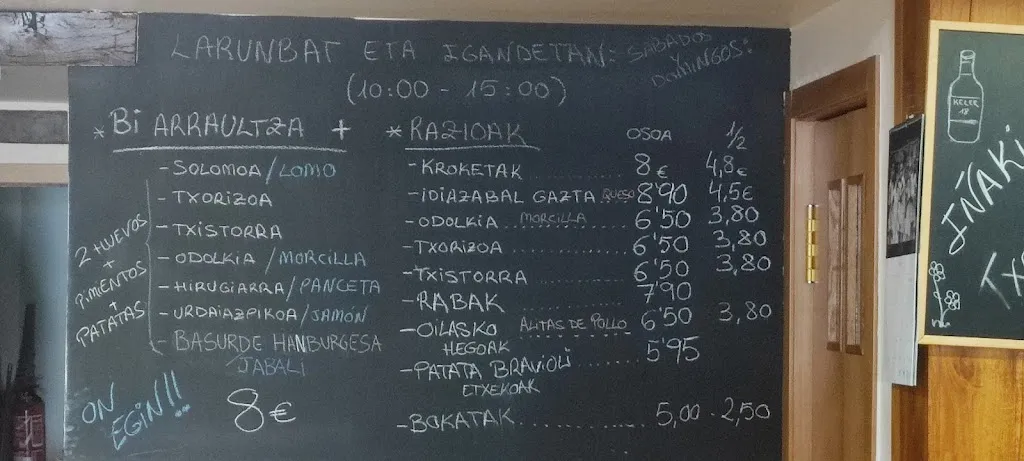 LARUNBAT ETA IGANDETAN: SABADOS Y DOMINGOS:
(10:00 - 15:00)
* Bi ARRAULTZA +
- SOLOMOA / LOMO
- TXORIZOA
- TXISTORRA
- ODOLKIA / MORCILLA
- HIRUGIARRA / PANCETA
- URDAIAZPIKOA / JAMÓN
- BASURDE HANBURGESA
JABALI
2 HUEVOS
+
PIMIENTOS
+
PATATAS
8€
ON EGIN!!
* RAZIOAK OSOA 1/2
- KROKETAK 8€ 4,8€
- IDIAZABAL GAZTA QUESO 8'90 4,5€
- ODOLKIA MORCILLA 6'50 3,80
- TXORIZOA 6'50 3,80
- TXISTORRA 6'50 3,80
- RABAK 7'90
- OILASKO HEGOAK ALITAS DE POLLO 6'50 3,80
- PATATA BRAVIOLI ETXEKOAK 5'95
- BOKATAK 5,00 - 2,50
KELER
18
IÑAKI